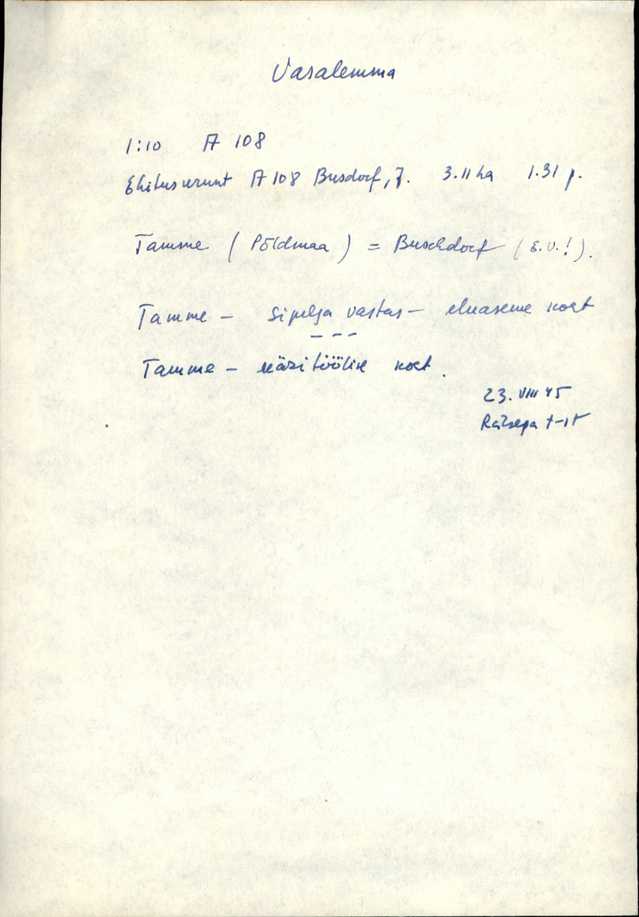 Vasalemma
1:10 A 108
A 108 Busdorf, J. 3.11 ha 1.31 p.
Tamme (Põldmaa) = Buschdorf (E.V.!).
Tamme – Sipelga vastas – eluaseme koht
– – –
Tamme – käsitöölise koht.
23. VIII 45
Rätsepa t-lt